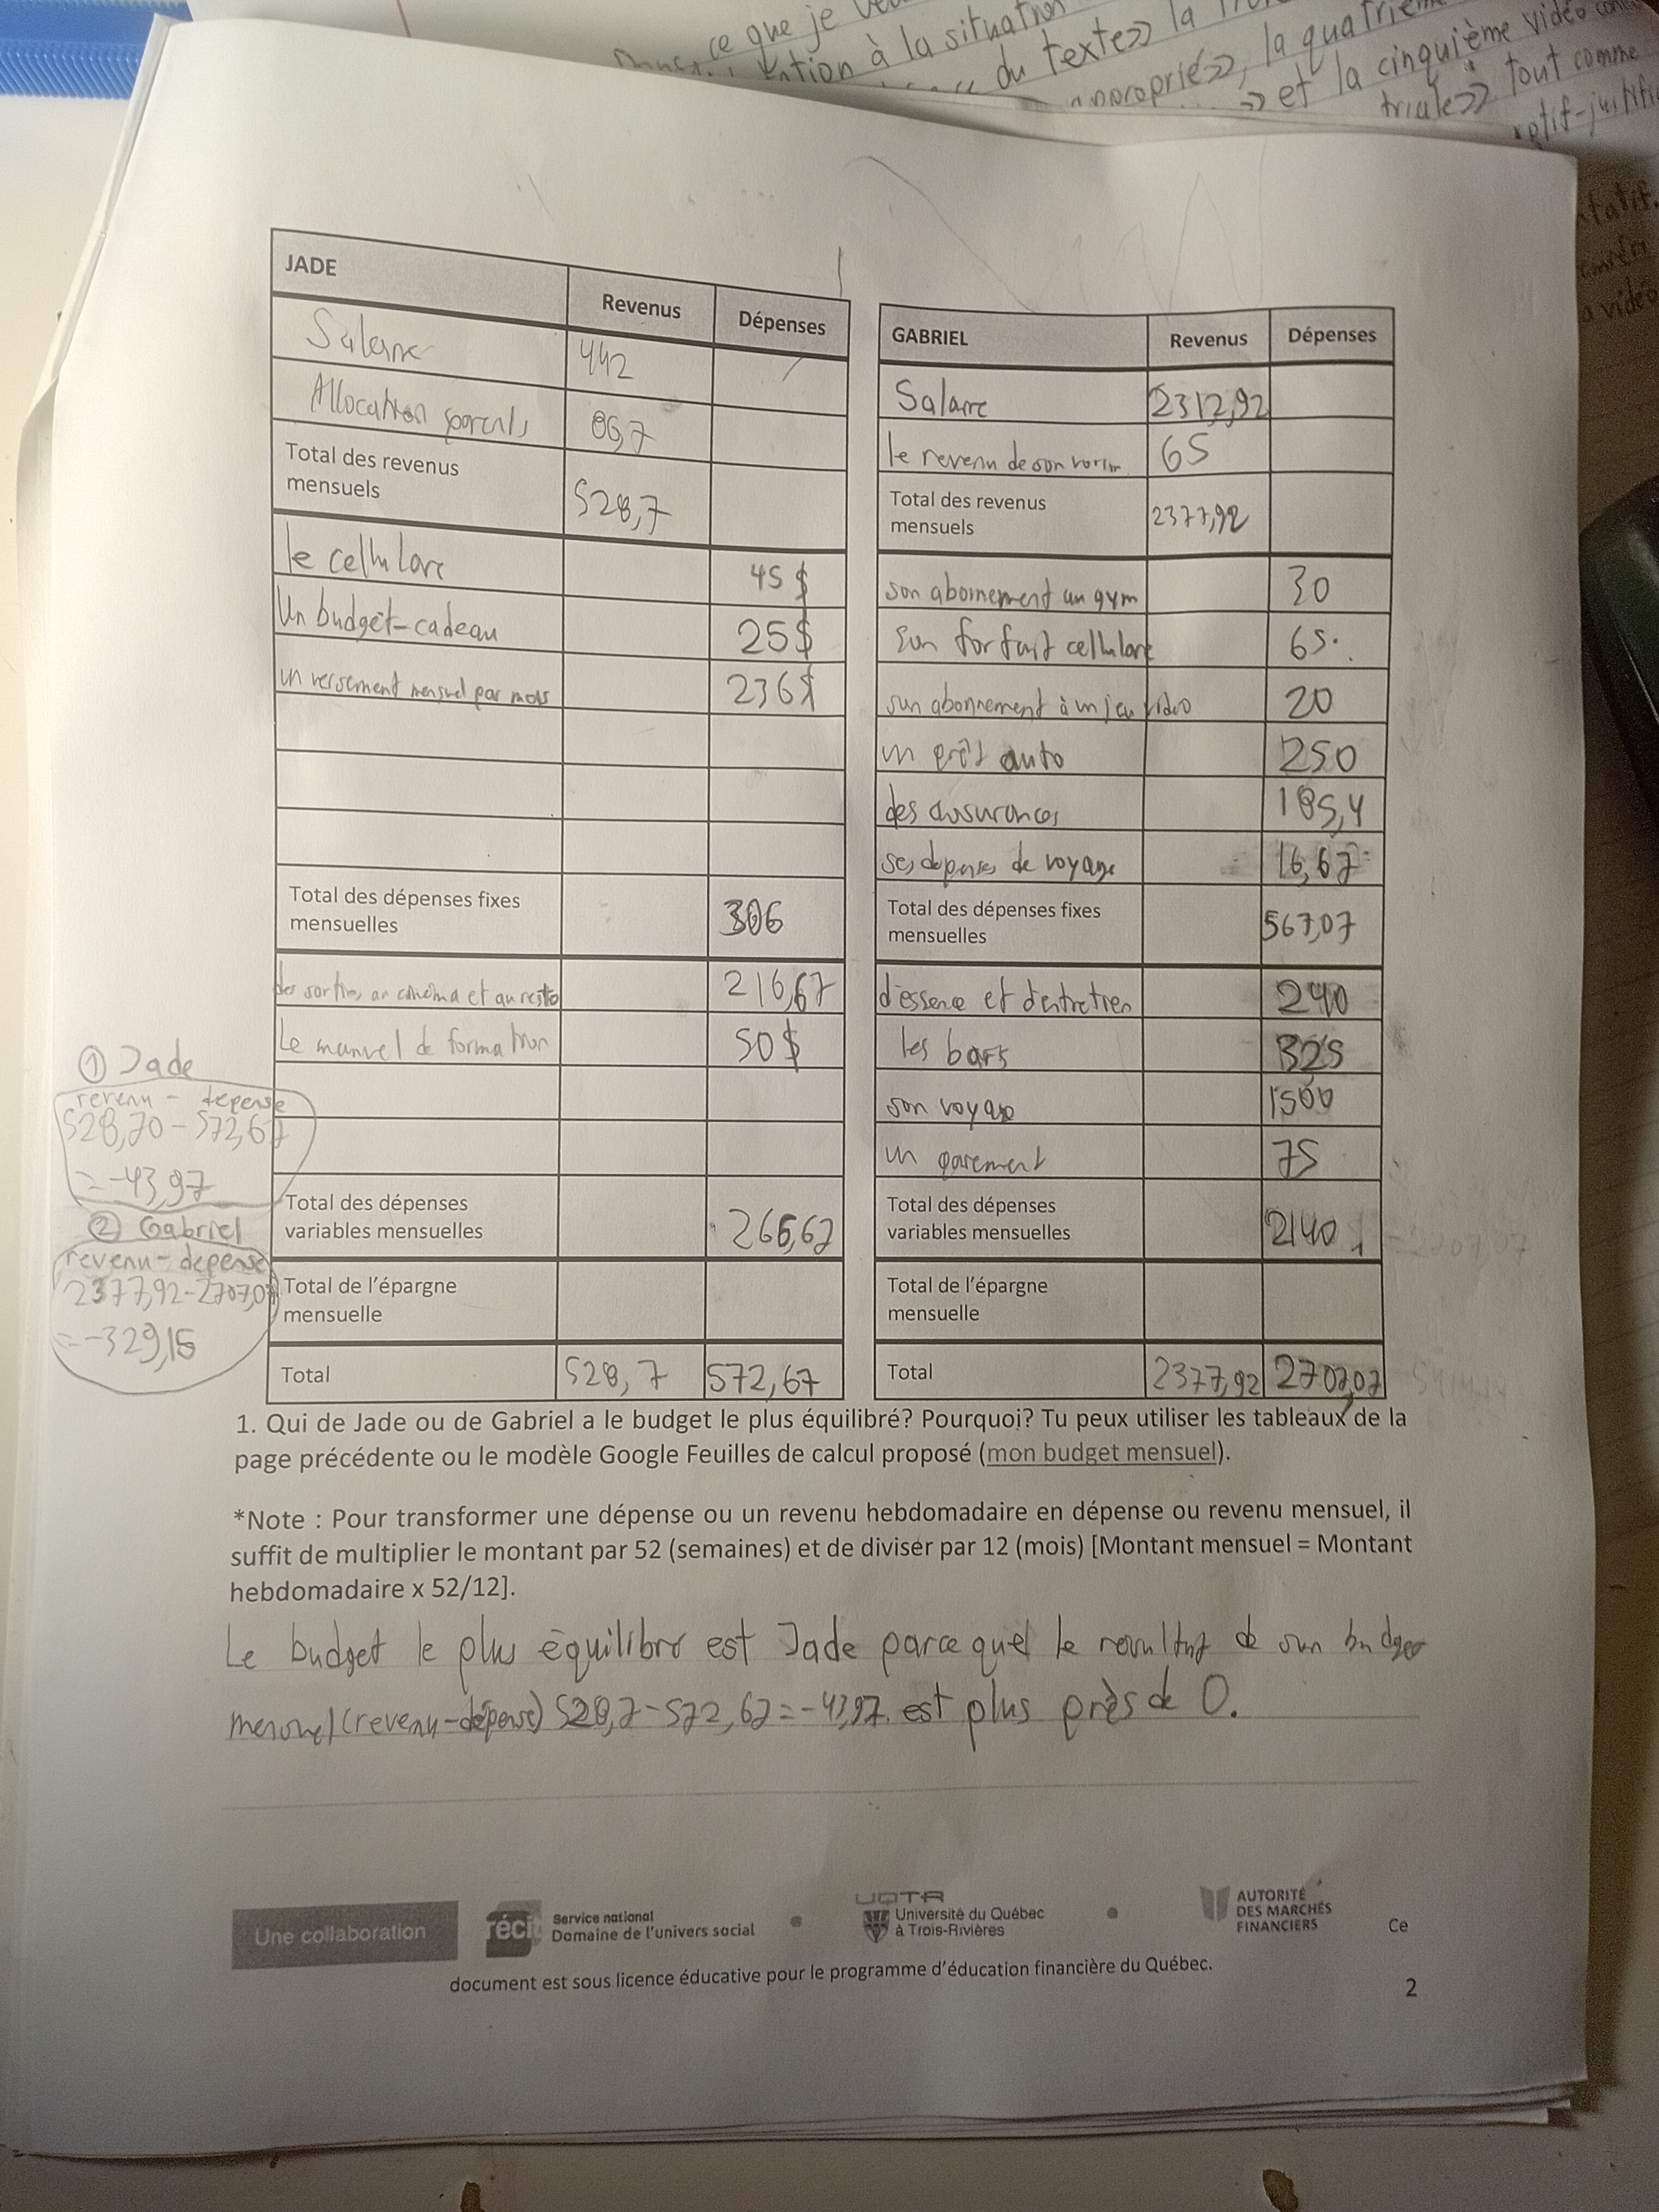 ce que je
à la situation
du texte>> la
la quatrième
>> et la cinquième vidéo
tout comme
JADE
Revenus
Dépenses
Salaire
442
Allocation parents
86,7
Total des revenus
mensuels
528,7
le cellulare
45 $
Un budget-cadeau
25$
un versement mensuel par mois
236$
Total des dépenses fixes
mensuelles
306
des sorties au cinéma et au resto
216,67
Le manuel de formation
50$
Total des dépenses
variables mensuelles
266,67
Total de l'épargne
mensuelle
Total
528,7
572,67
① Jade
revenu - depense
528,70 - 572,67
= -43,97
② Gabriel
revenu - depense
2377,92-2707,07
= -329,15
GABRIEL
Revenus
Dépenses
Salaire
2312,92
le revenu de son
65
Total des revenus
mensuels
2377,92
son abonnement au gym
30
Son forfait cellulare
65
son abonnement à un jeu vidéo
20
un prêt auto
250
des assurances
185,4
ses depenses de voyage
16,67
Total des dépenses fixes
mensuelles
567,07
d'essence et d'entretien
240
les bars
325
son voyage
1500
un
75
Total des dépenses
variables mensuelles
2140
= 2707,07
Total de l'épargne
mensuelle
Total
2377,92
2707,07
1. Qui de Jade ou de Gabriel a le budget le plus équilibré? Pourquoi? Tu peux utiliser les tableaux de la
page précédente ou le modèle Google Feuilles de calcul proposé (mon budget mensuel).
*Note : Pour transformer une dépense ou un revenu hebdomadaire en dépense ou revenu mensuel, il
suffit de multiplier le montant par 52 (semaines) et de diviser par 12 (mois) [Montant mensuel = Montant
hebdomadaire x 52/12].
Le budget le plus équilibré est Jade parce quel le resultat de son budget
mensuel (revenu-dépense) 528,7-572,67=-43,97. est plus près de 0.
Une collaboration
récit
Service national
Domaine de l'univers social
UQTR
Université du Québec
à Trois-Rivières
AUTORITÉ
DES MARCHÉS
FINANCIERS
Ce
document est sous licence éducative pour le programme d'éducation financière du Québec.
2